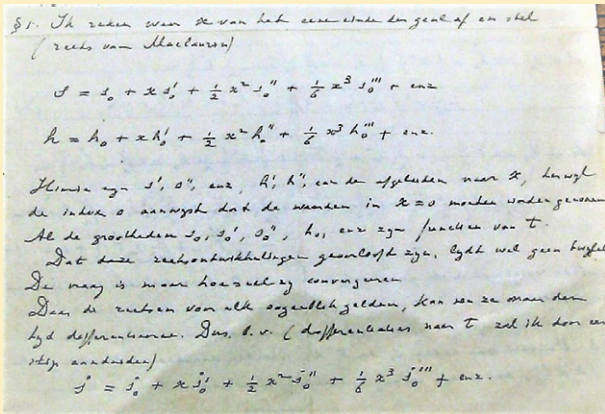 §1. Ik reken weer x van het eene einde der geul af en stel
(reeks van Maclaurin)
s = s₀ + x s₀' + ½ x² s₀'' + ⅙ x³ s₀''' + enz
h = h₀ + x h₀' + ½ x² h₀'' + ⅙ x³ h₀''' + enz.
Hierin zyn s', s'', enz, h', h'', enz de afgeleiden naar x, terwyl
de index 0 aanwyst dat de waarden in x=0 moeten worden genomen
Al de grootheden s₀, s₀', s₀'', h₀, enz zyn functies van t.
Dat deze reeksontwikkelingen geoorloofd zyn, lydt wel geen twyfel
De vraag is maar hoe snel zy convergeeren
Daar de reeksen voor elk oogenblik gelden, kan men ze naar den
tyd differentieeren. Dus b.v. (differentiaties naar t zal ik door een
stip aanduiden)
ṡ = ṡ₀ + x ṡ₀' + ½ x² ṡ₀'' + ⅙ x³ ṡ₀''' + enz.